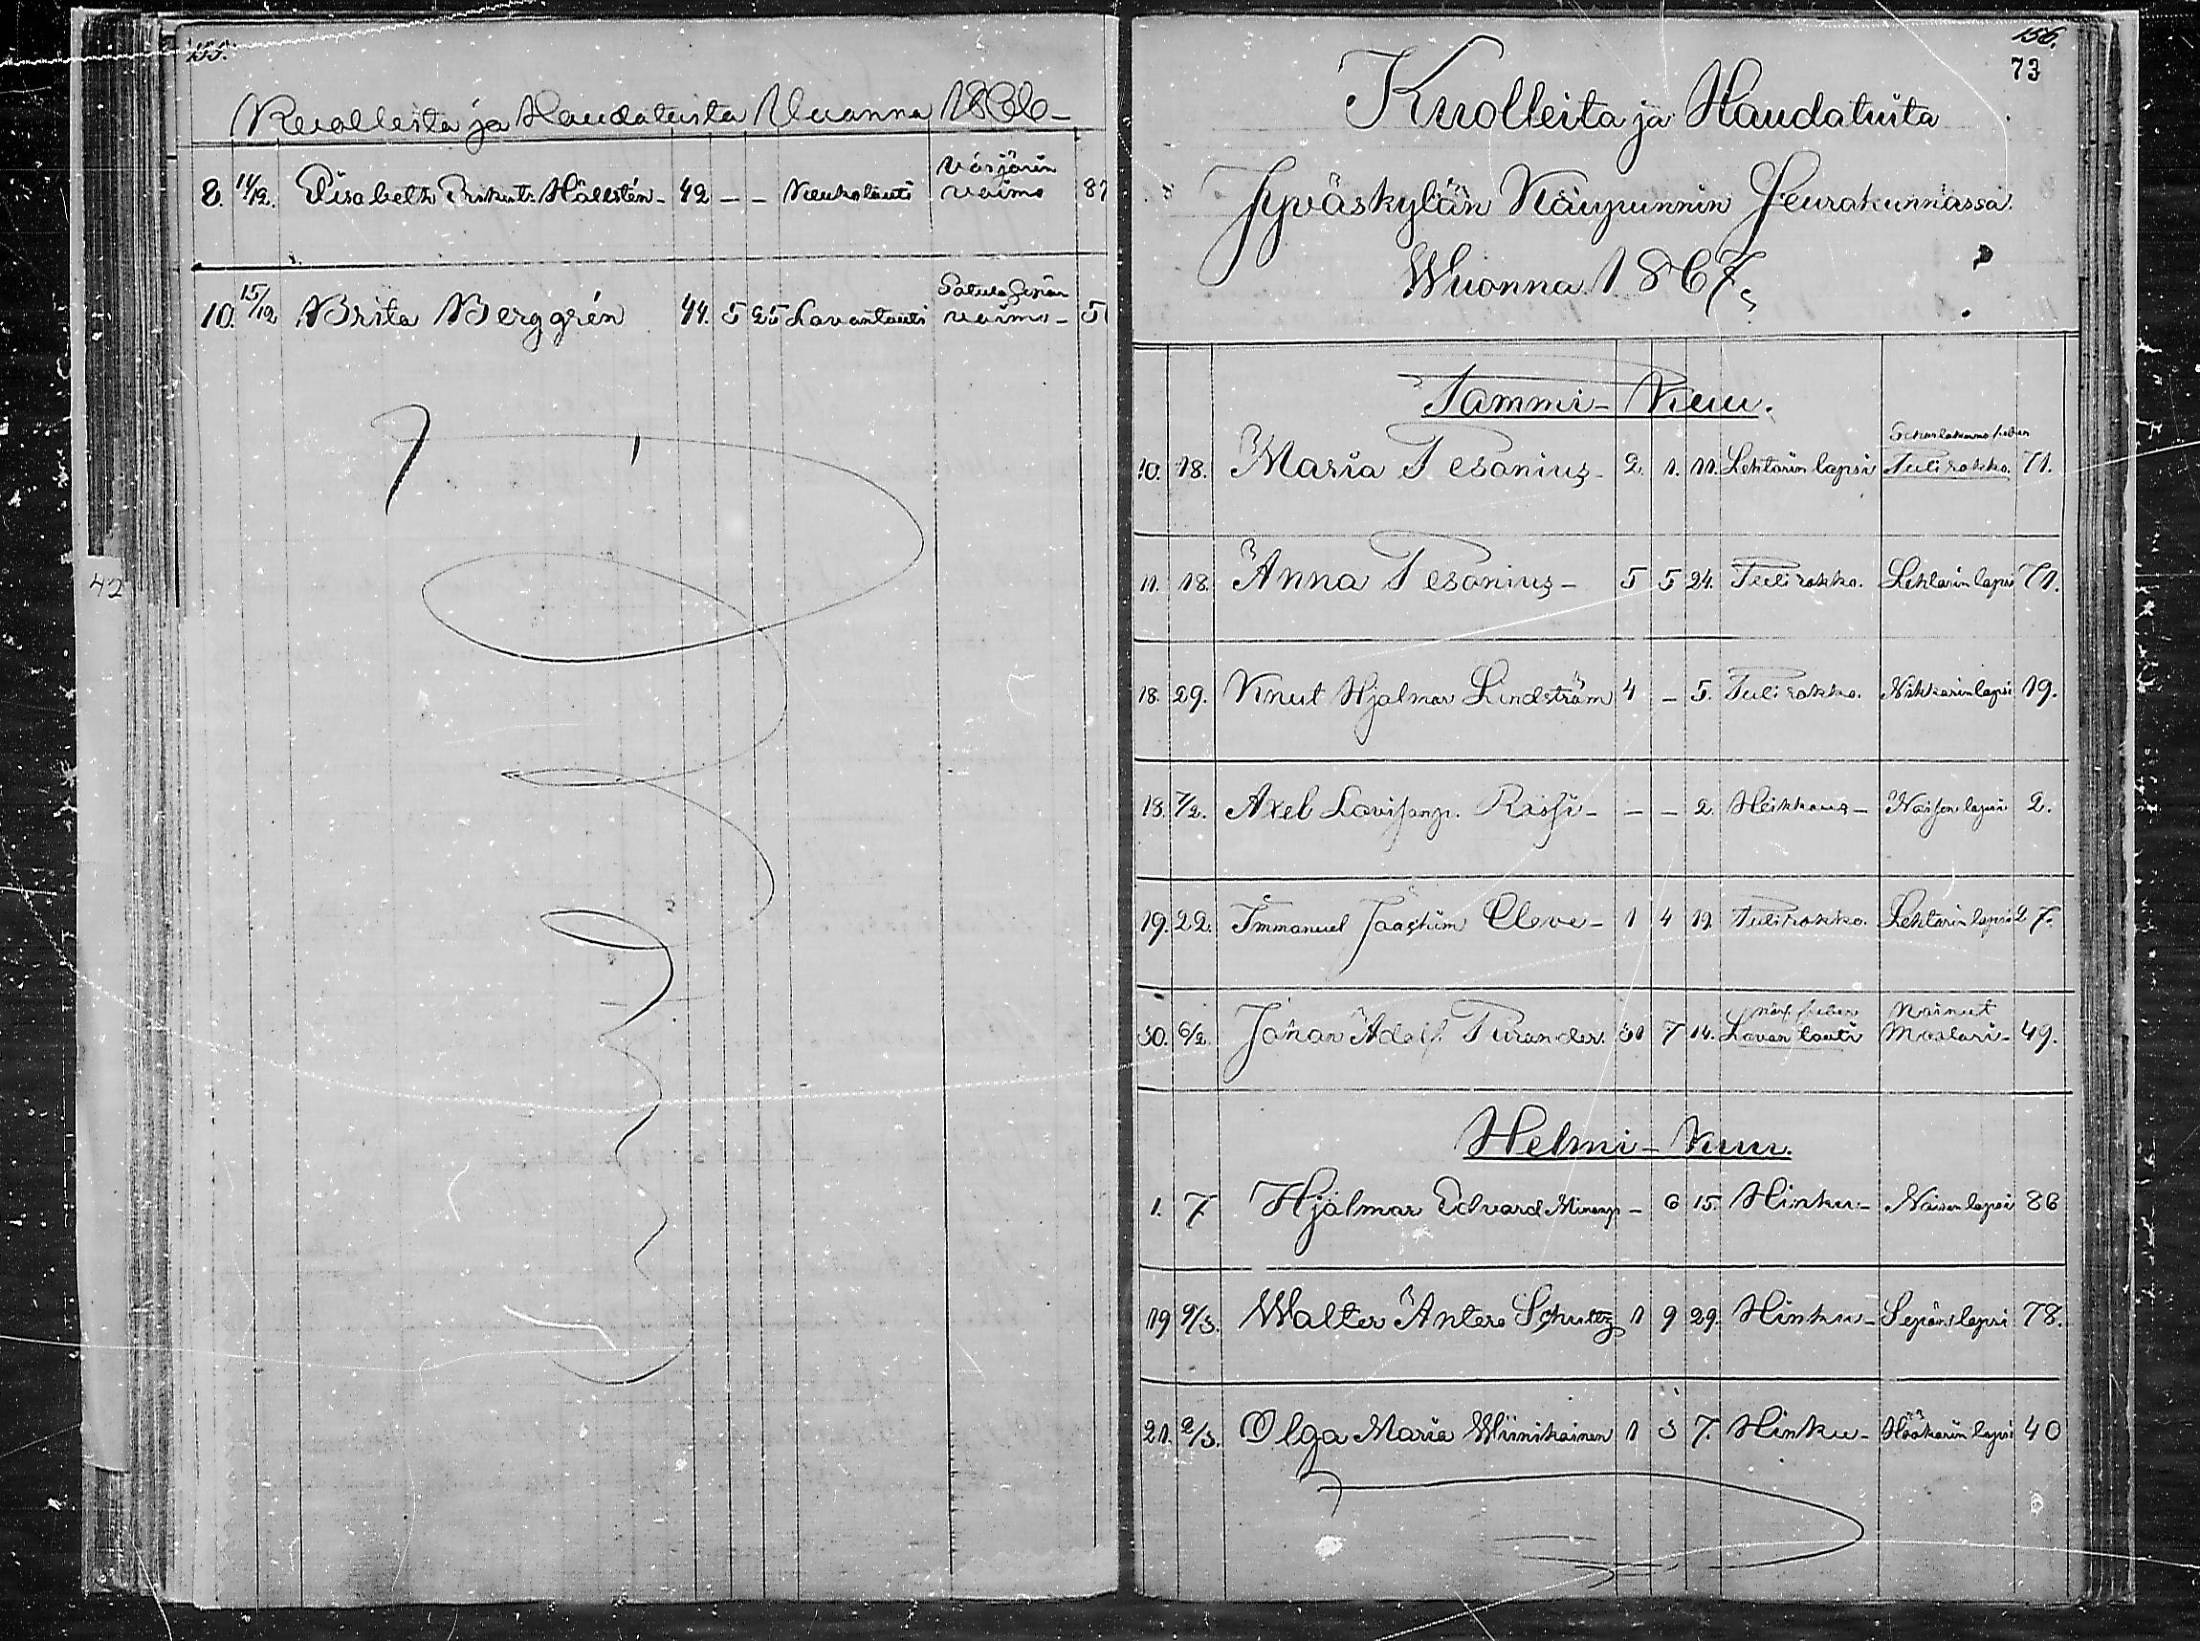 155.
Kuolleita ja Haudatuita Vuonna 1866
Värjärin
8. 14/12. Elisabeth Hällstén - 42 - - Keuhkotauti vaimo 87
10. 15/12 Brita Berggrén 44. 5 25 Lavantauti vaimo - 5
42
156.
73
Kuolleita ja Haudatuita
Jyväskylän Kaupunnin Seurakunnassa
Wuonna 1867.
Tammi-Kuu.
10. 18. Maria Fesonius - 2. 1. 11. Lehtorin lapsi Tulirokko. 71.
11. 18. Anna Fesonius - 5 5 24. Tulirokko. Lehtorin lapsi 71.
18. 29. Knut Hjalmar Lindström 4 - 5. Tulirokko. Nikkarin lapsi 19.
18. 7/2. Axel - - 2. Heikkous - lapsi 2.
19. 22. Immanuel Joachim Cleve - 1 4 19. Tulirokko. Lehtorin lapsi 27.
Nainut
30. 6/2. Johan Adolf Turander. 31 7 14. Lavantauti Maalari - 49.
Helmi-Kuu.
1. 7 Hjalmar Edvard - 6 15. Hinku - Naisen lapsi 86
19 9/3. Walter Antero Schultz 1 9 29. Hinku - Sepän lapsi 78.
21. 2/3. Olga Maria Wiinikainen 1 3 7. Hinku - lapsi 40